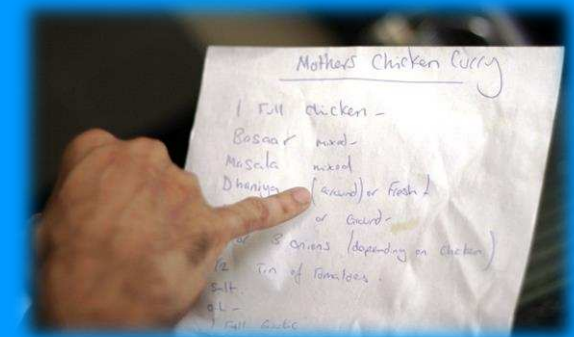 Mothers Chicken Curry
1 Full chicken -
Basaar mixed -
Masala mixed
Dhaniya (ground) or Fresh -
or Ground -
or 3 onions (depending on chicken)
1/2 Tin of Tomatoes.
Salt.
oil -
1 Full Garlic